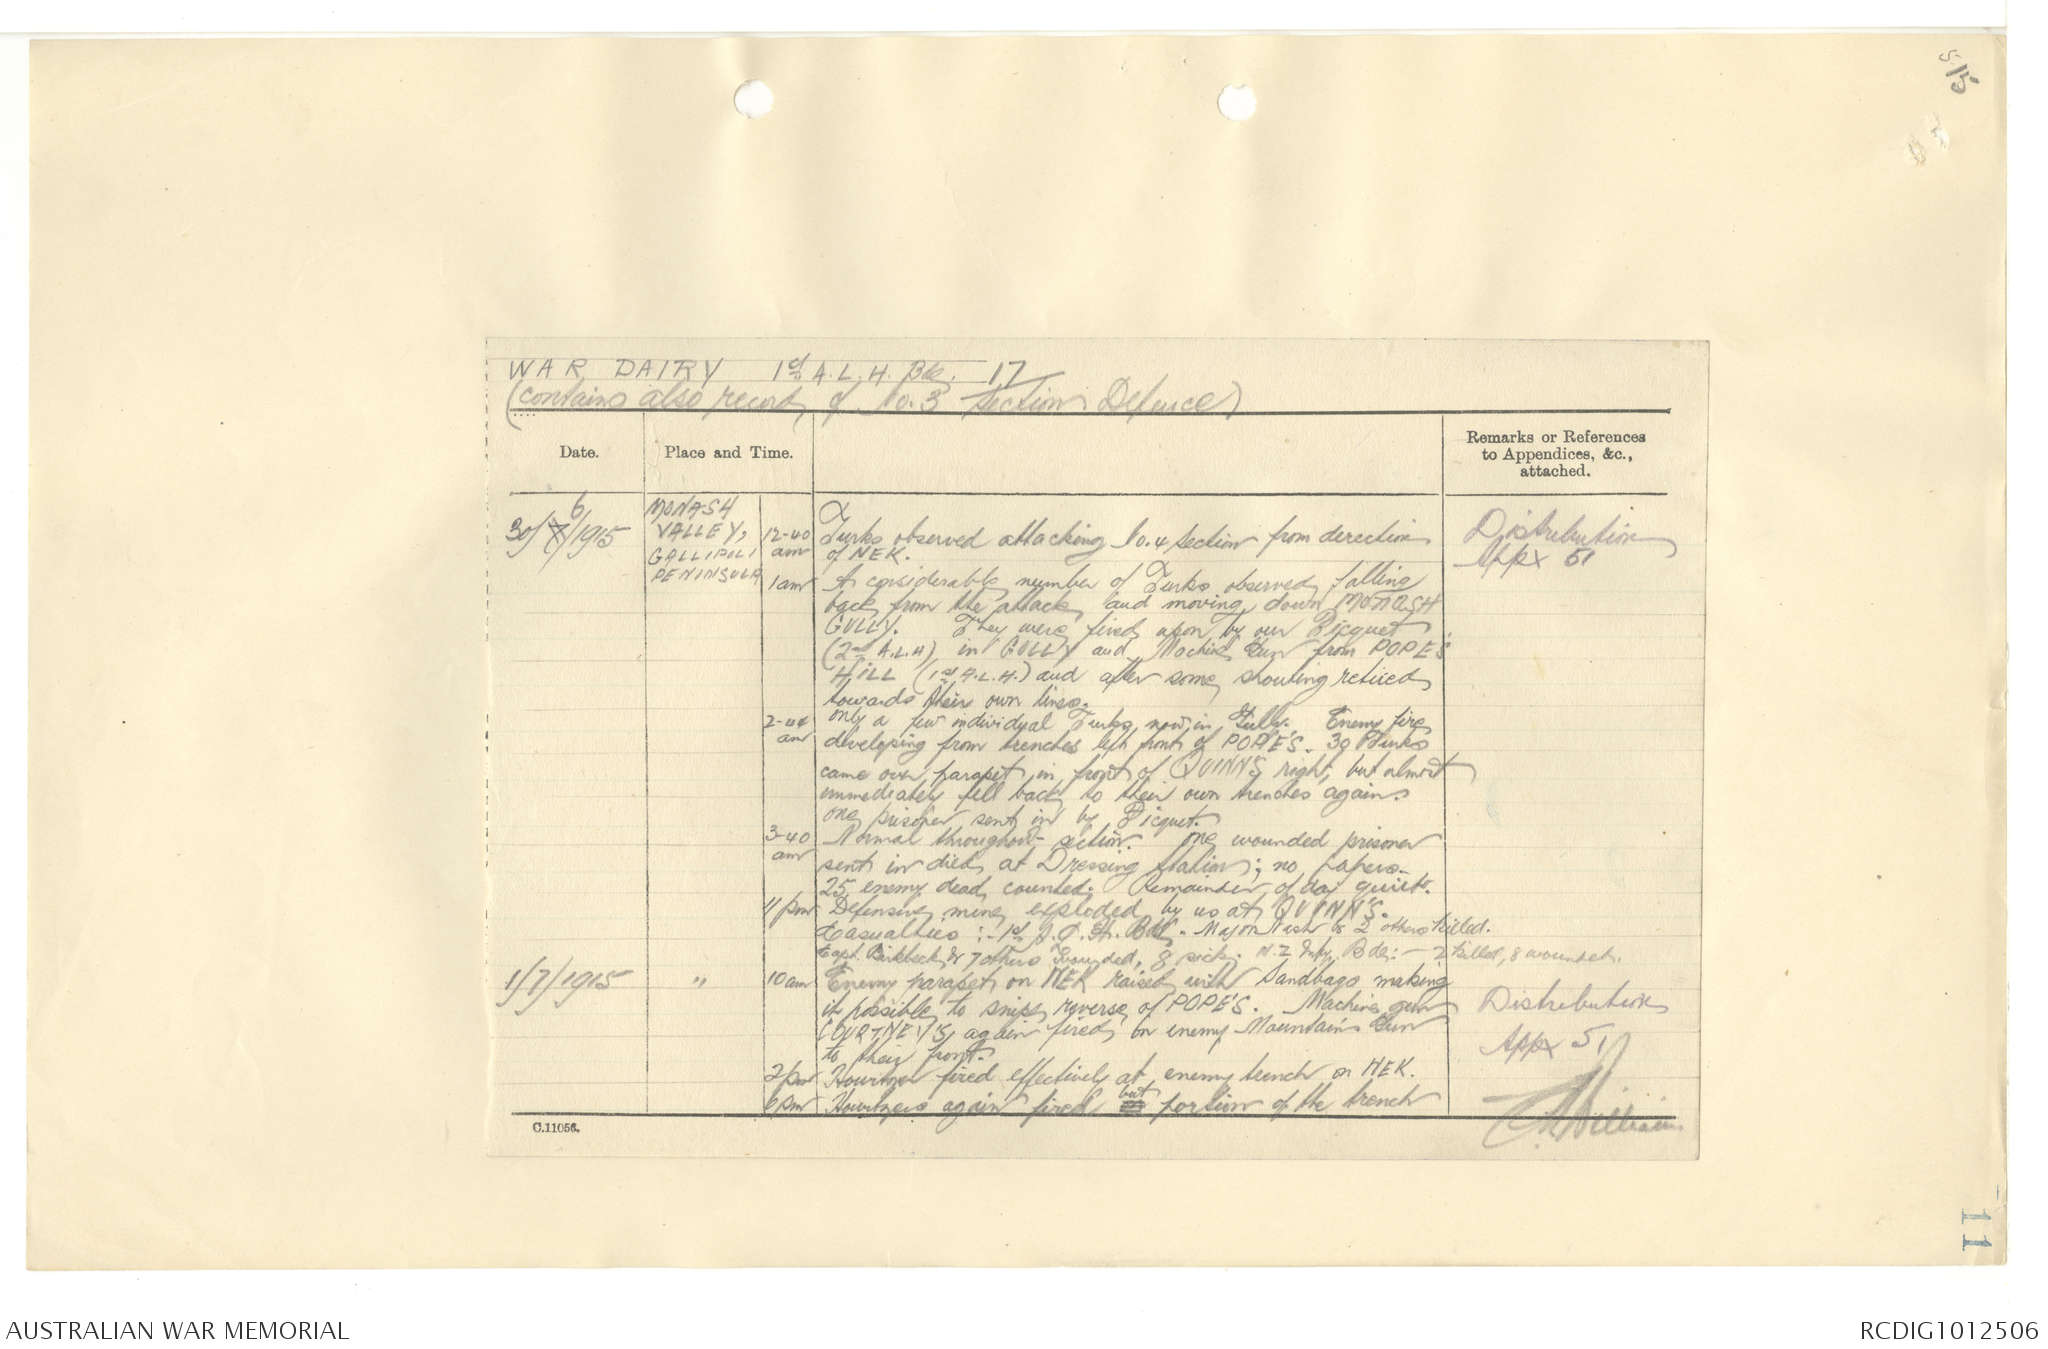 5/5
WAR DAIRY 1st A.L.H. Bde. 17
(contains also record of No. 3 Section Defence)
Date.
Place and Time.
Remarks or References
to Appendices, &c.,
attached.
30/7/1915
6
MONASH
VALLEY,
GALLIPOLI
PENINSULA
12-40
am
Turks observed attacking No. 4 Section from direction
of NEK.
Distribution
Appx 51
1 am
A considerable number of Turks observed falling
back from the attack and moving down MONASH
GULLY. They were fired upon by our Picquet
(2nd A.L.H) in GULLY and Machine Gun from POPE'S
HILL (1st A.L.H.) and after some shouting retired
towards their own lines.
am
only a few individual Turks now in Gully. Enemy fire
developing from trenches left front of POPE'S. 30 Turks
came over parapet in front of QUINN'S right, but almost
immediately fell back to their own trenches again.
one prisoner sent in by Picquet.
3-40
am
Normal throughout section. one wounded prisoner
sent in died at Dressing Station; no papers.
25 enemy dead counted. Remainder of day quiet.
11 pm
Defensive mine exploded by us at QUINN'S.
Casualties :- 1st A.L.H. Bde. - Major Nash & 2 others killed.
Capt. Birkbeck & 7 others wounded, 8 sick. N.Z Infy. Bde: - 2 killed, 8 wounded.
1/7/1915
"
10 am
Enemy parapet on NEK raised with Sandbags making
it possible to snipe reverse of POPE'S. Machine gun
COURTNEY'S again fired on enemy Mountain Gun
to their front.
Distribution
Appx 51
2 pm
Howitzer fired effectively at enemy trench on NEK.
6 pm
Howitzers again fired but portion of the trench
Williams
C.11056.
11
AUSTRALIAN WAR MEMORIAL
RCDIG1012506